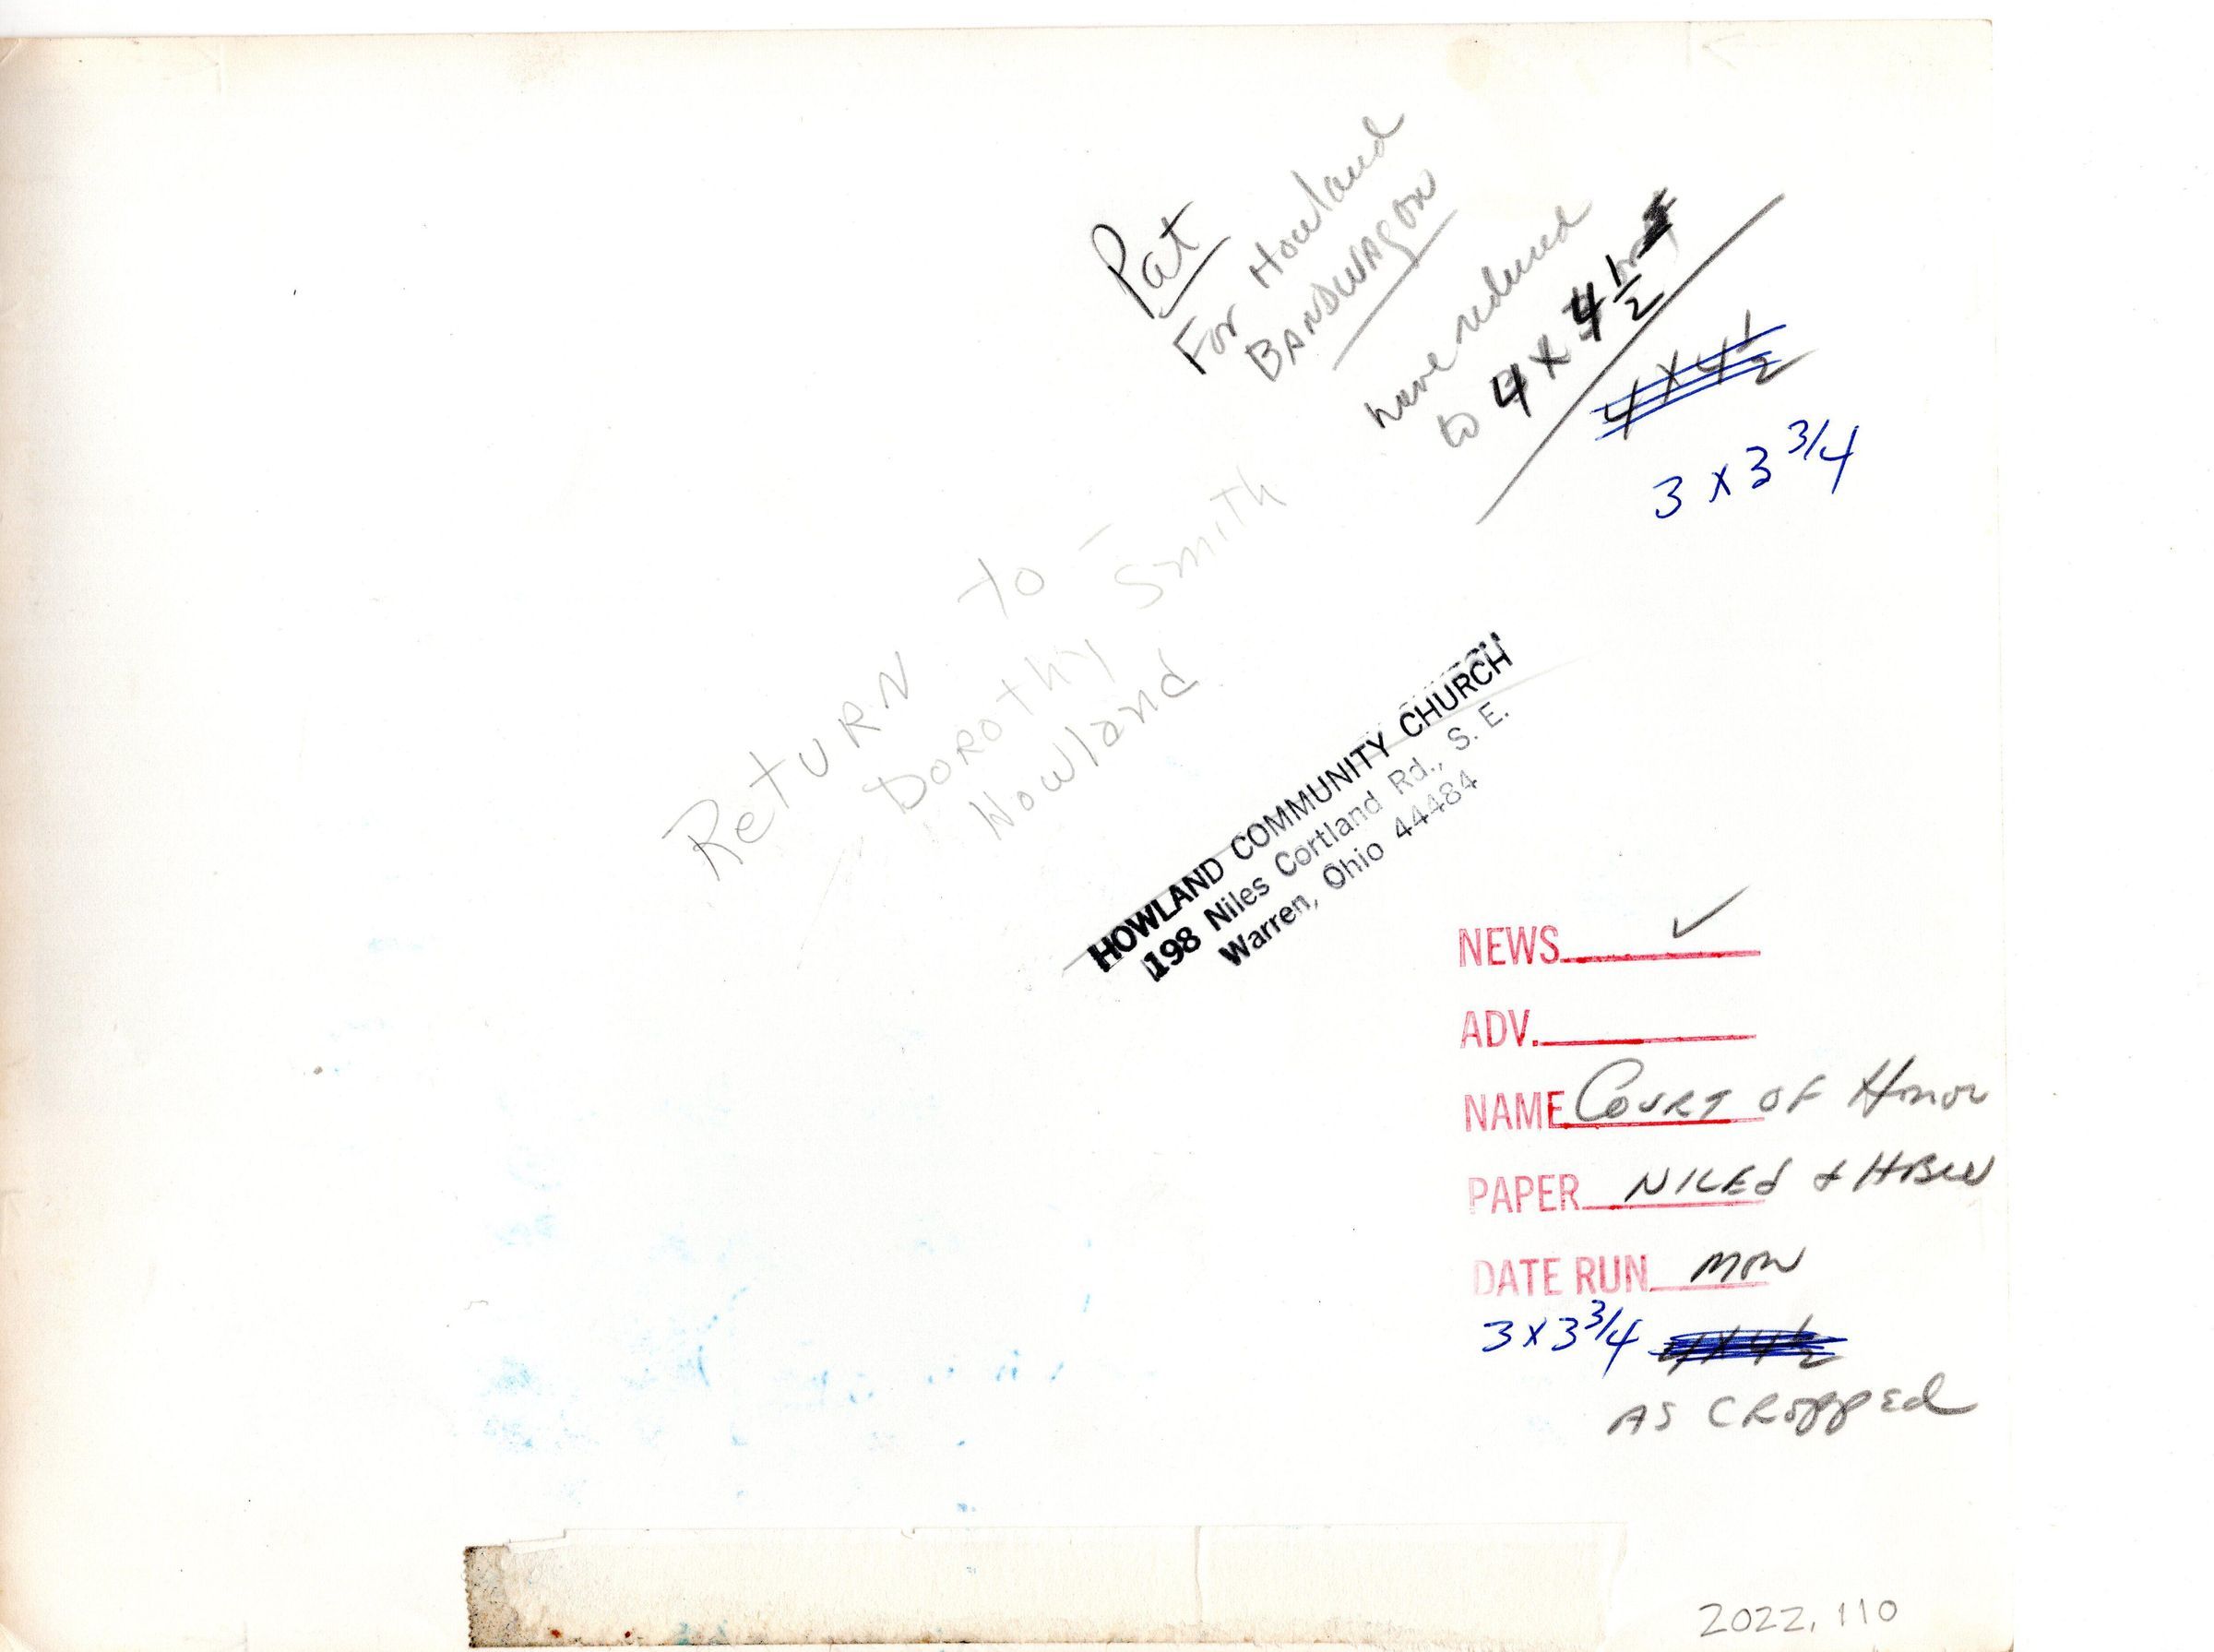 Pat
For Howland
BANDWAGON
have reduced
to 4 x 4 1/2
4 x 4 1/2
3 x 3 3/4
Return to -
Dorothy Smith
Howland
HOWLAND COMMUNITY CHURCH
198 Niles Cortland Rd., S. E.
Warren, Ohio 44484
NEWS ✓
ADV.
NAME Court of Honor
PAPER NILES + HBW
DATE RUN MON
3 x 3 3/4 4 x 4 1/2
AS CROPPED
2022.110